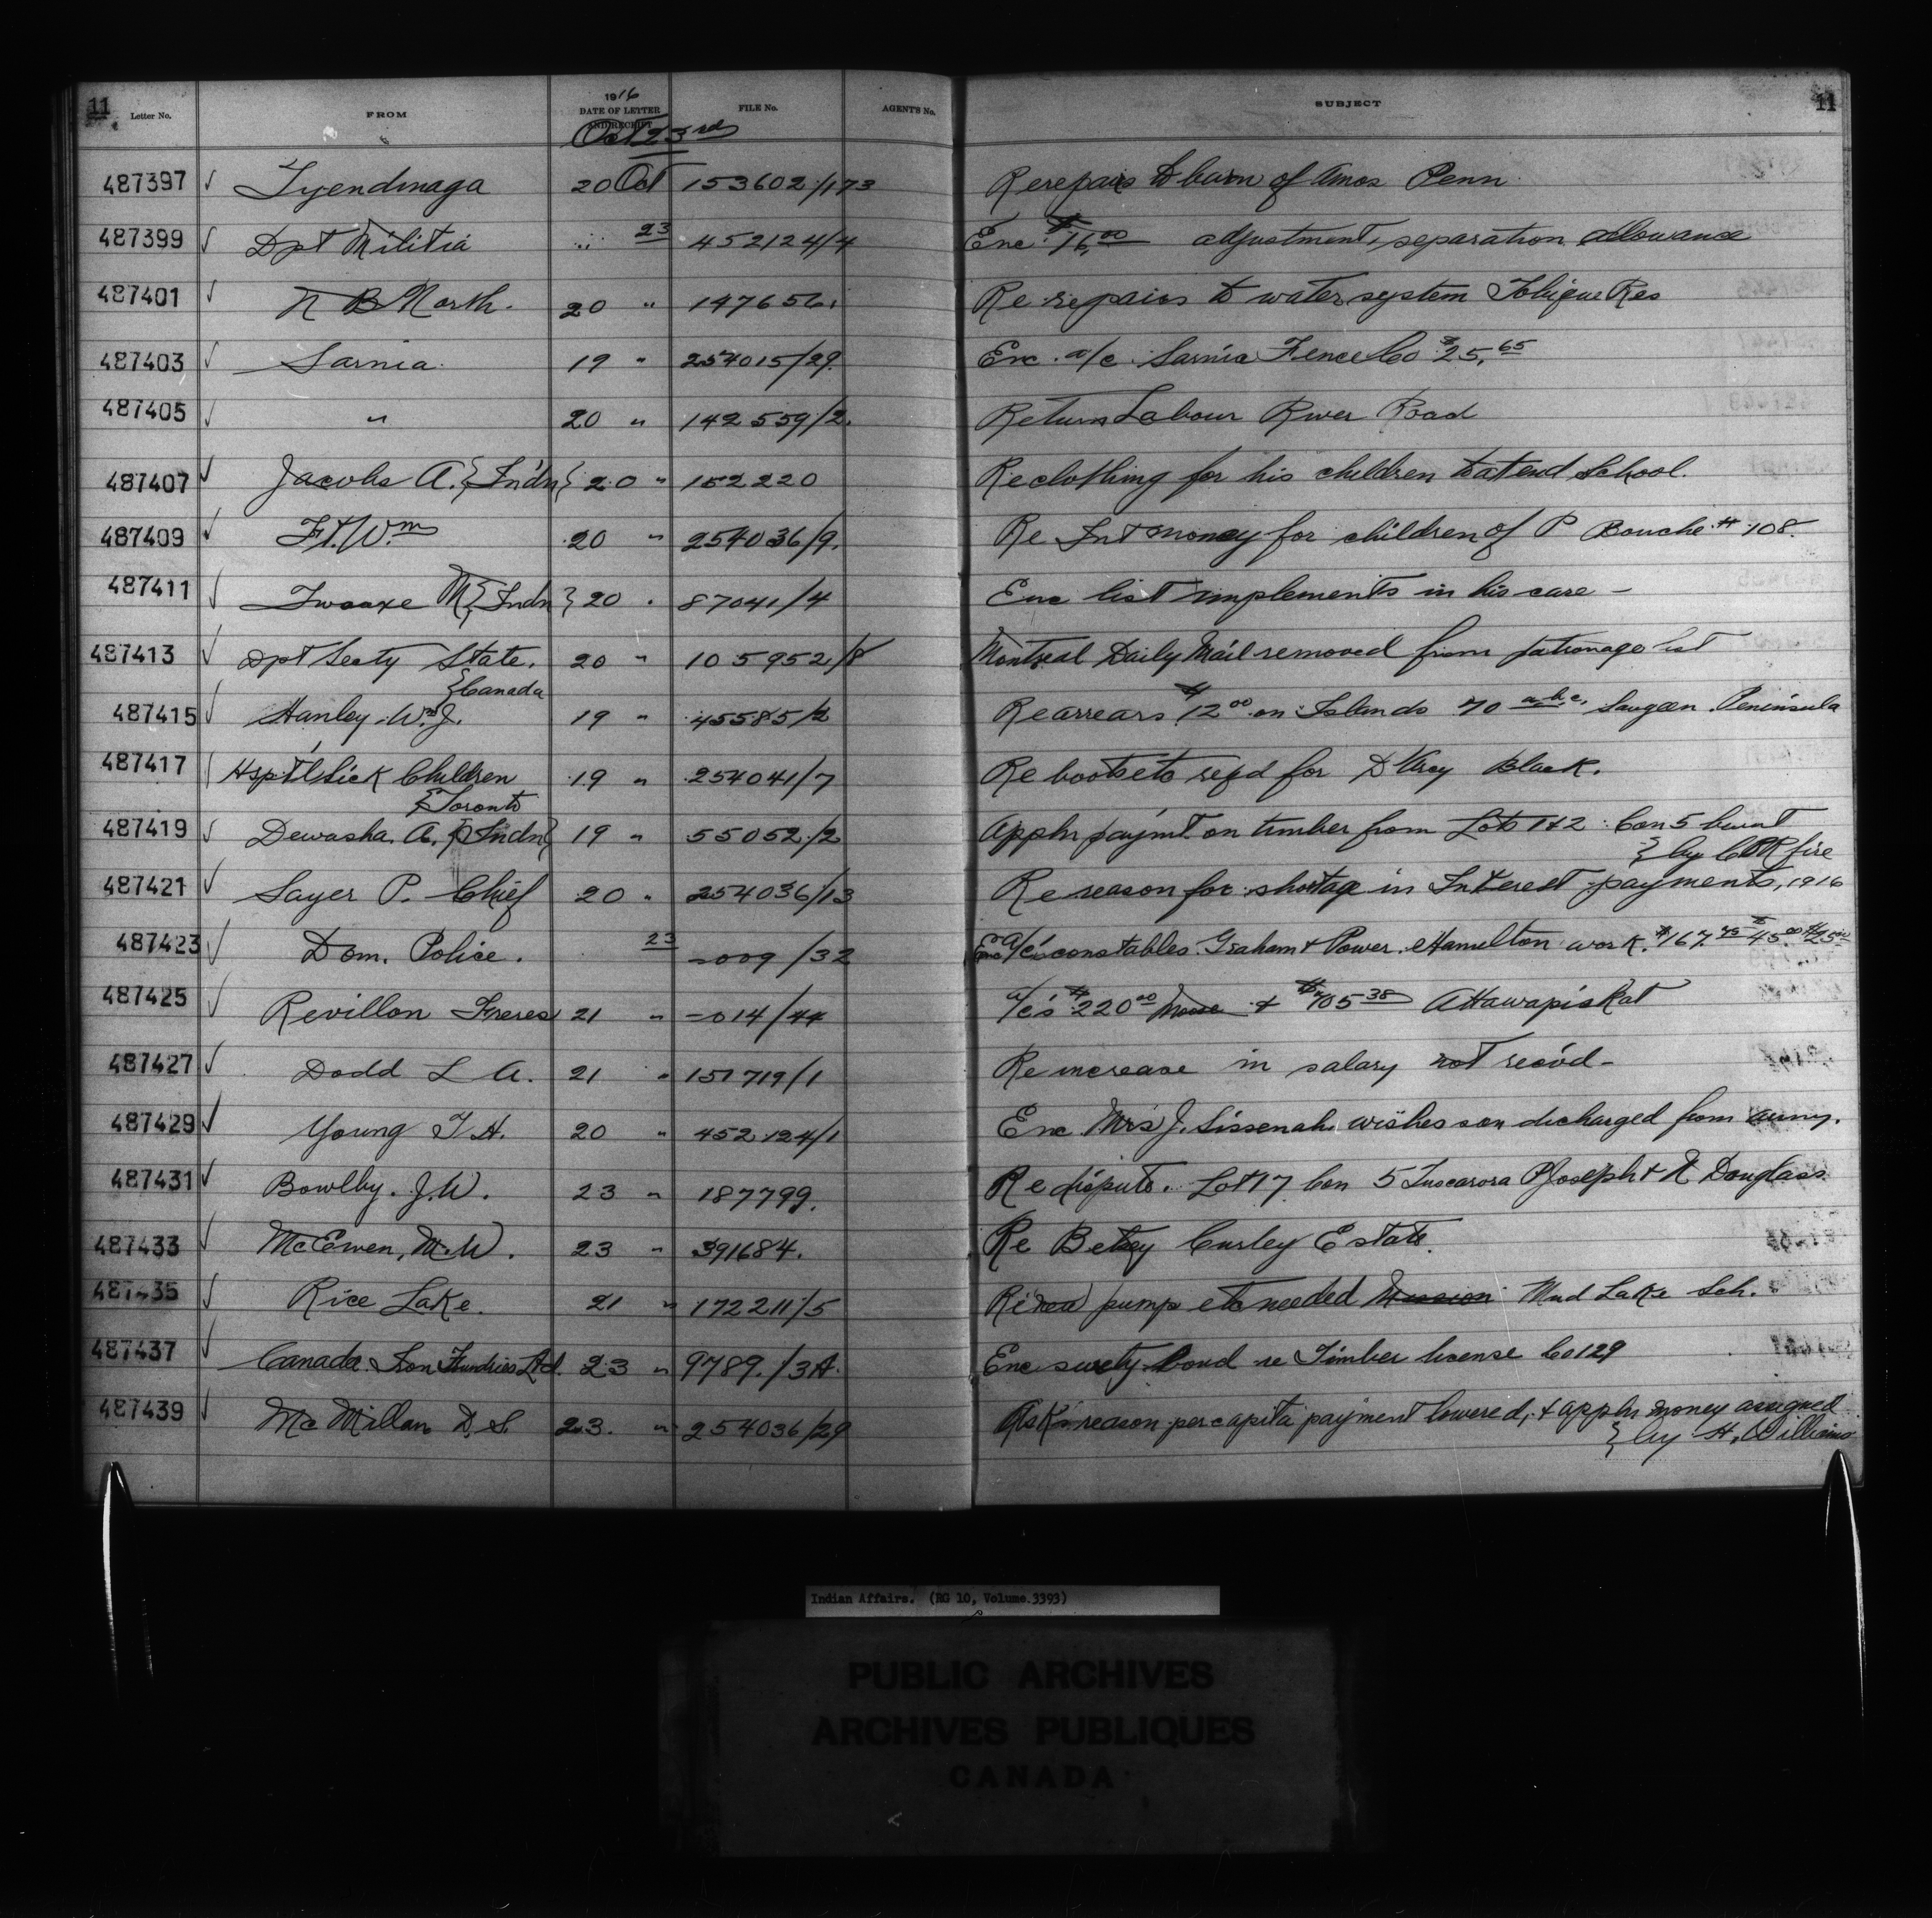 11 Letter No. FROM 1916 DATE OF LETTER AND RECEIPT FILE No. AGENT'S No. SUBJECT 11
Oct 23rd
487397 √ Tyendinaga 20 Oct 153602/173 Re repairs to barn of Amos Penn
487399 √ Dpt Militia " 23 452124/4 Enc. $16.00 adjustment, separation allowance
487401 √ N B North. 20 " 147656. Re repairs to water system Tobique Res
487403 √ Sarnia. 19 " 254015/29. Enc. a/c. Sarnia Fence Co $25.65
487405 √ " 20 " 142559/2. Return Labour River Road
487407 √ Jacobs A. {Ind'n} 20 " 152220 Re clothing for his children to attend School.
487409 √ Ft. Wm 20 " 254036/9. Re Int money for children of P Bouche # 108.
487411 √ M {Indn} 20 " 87041/4 Enc list implements in his care –
487413 √ Dpt Secty State. 20 " 105952/8 Montreal Daily Mail removed from patronage list
{Canada
487415 √ Hanley. Wm J. 19 " 45585/2 Re arrears $12.00 on Islands 70 a.b.c. Saugeen Peninsula
487417 Hspt'l Sick Children 19 " 254041/7 Re boots etc reqd for D'Arcy Black.
{Toronto
487419 √ Dewasha. A. {Indn} 19 " 55052/2 Appln paym't on timber from Lots 1 & 2 Con 5 burnt
{by CPR fire
487421 √ Sayer P. Chief 20 " 254036/13 Re reason for shortage in Interest payments, 1916
487423 √ Dom. Police. 23 -009/32 Enc a/c's constables Graham & Power. Hamilton work. $167.75 $45.00 $25.00
487425 √ Revillon Freres 21 " -014/44 a/c's $220.00 Moose & $705.38 Attawapiskat
487427 √ Dodd L A. 21 " 151719/1 Re increase in salary not rec'd –
487429 √ Young T. A. 20 " 452124/1 Enc Mrs J. Sissenah wishes son discharged from army.
487431 √ Bowlby. J. W. 23 " 187799. Re dispute. Lot 17 Con 5 Tuscarora P Joseph & N Douglass.
487433 √ McEwen, M. W. 23 " 391684. Re Betsey Curley Estate.
487435 √ Rice Lake. 21 " 172211/5 Re new pump etc needed Mission Mud Lake Sch.
487437 √ Canada Iron Foundries Ltd. 23 " 9789./3A. Enc surety bond re Timber license Co 129
487439 √ McMillan D. S. 23. " 254036/29 Asks reason per capita payment lowered, & appln money assigned
{by H. Williams
Indian Affairs. (RG 10, Volume 3393)
PUBLIC ARCHIVES
ARCHIVES PUBLIQUES
CANADA